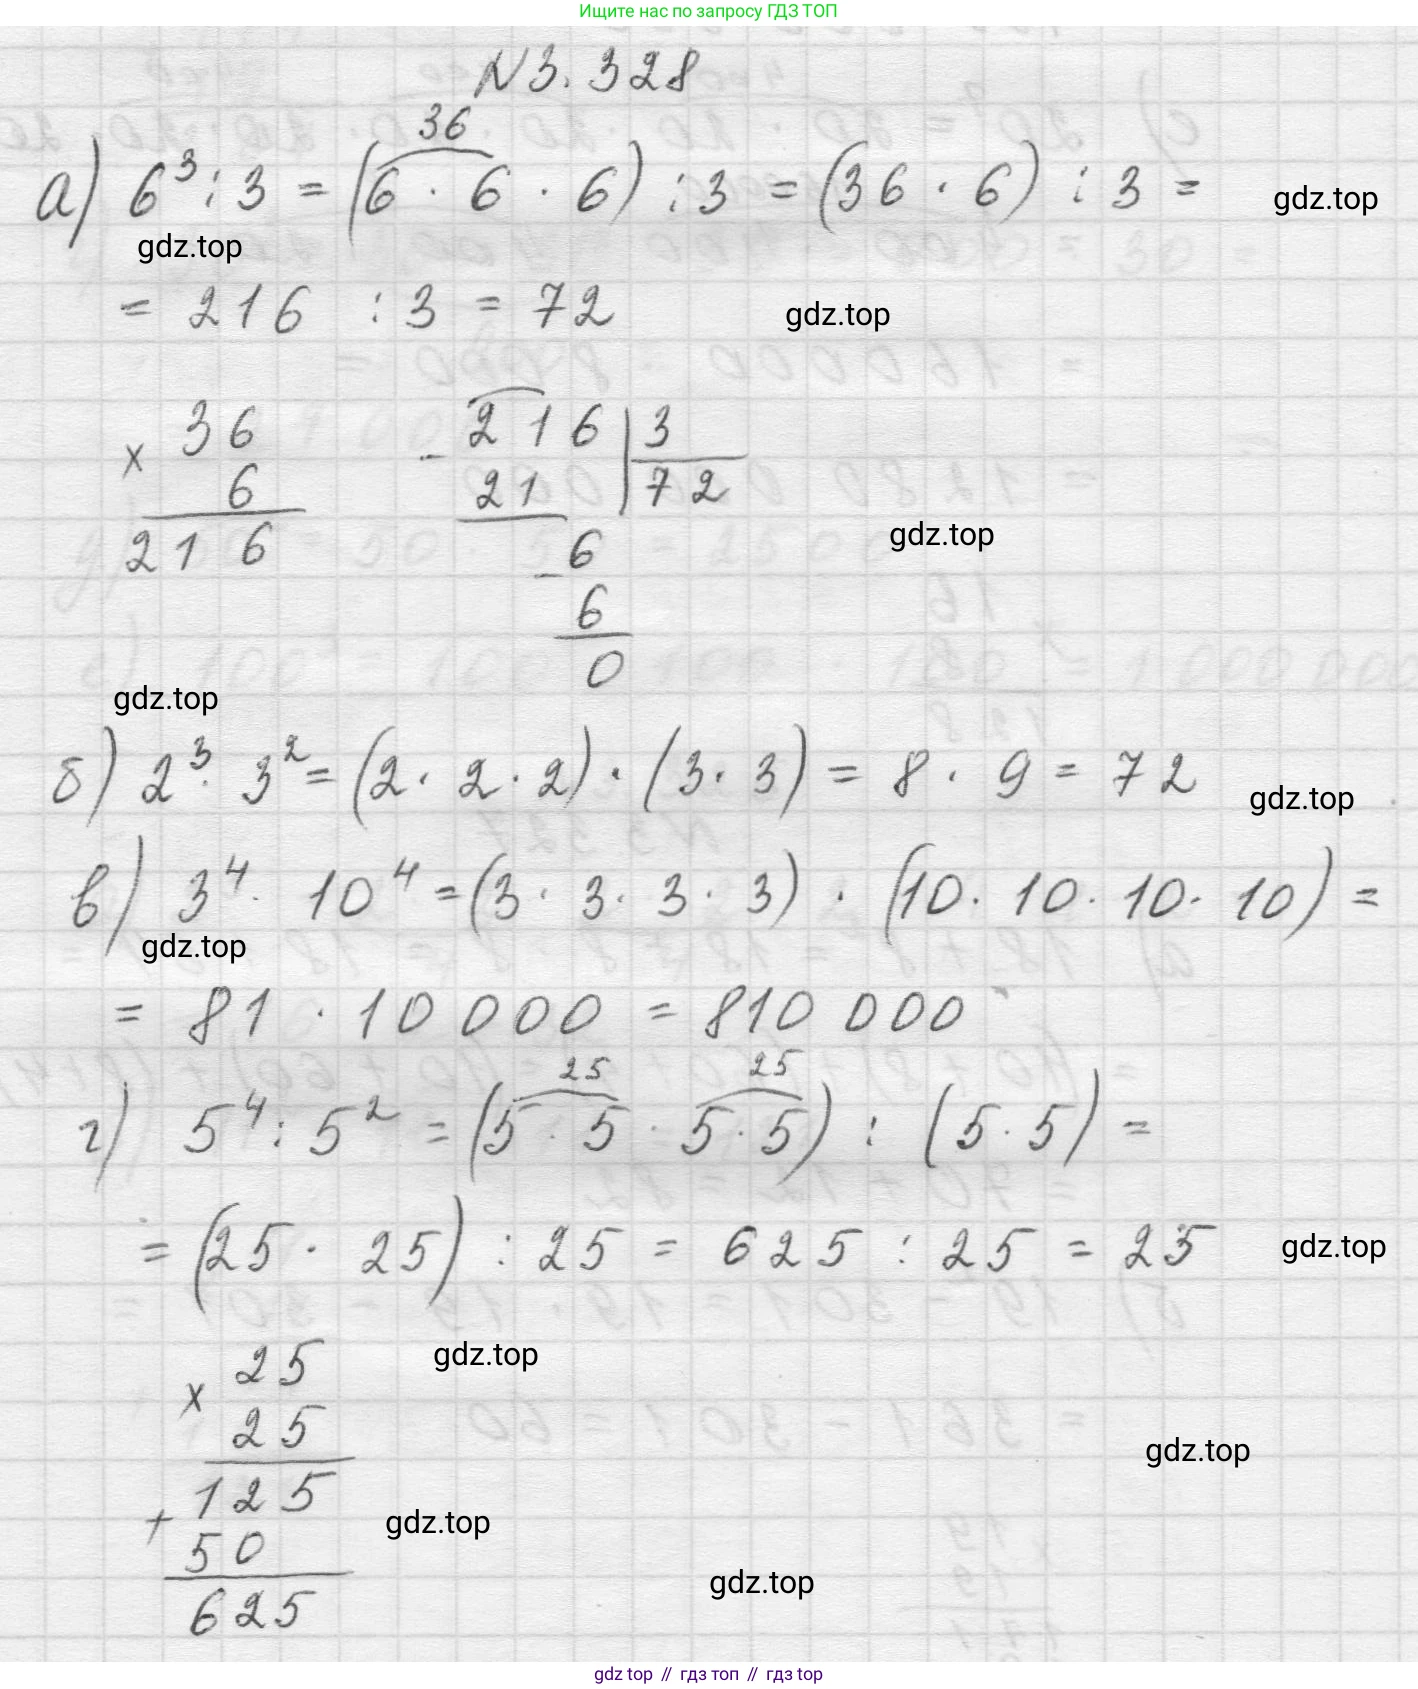 Ищите нас по запросу ГДЗ ТОП
N3.328
36
а) 6³ : 3 = (6 · 6 · 6) : 3 = (36 · 6) : 3 =
gdz.top
gdz.top
= 216 : 3 = 72
gdz.top
× 36
6
216
- 216 | 3
21 72
- 6
6
0
gdz.top
gdz.top
б) 2³ · 3² = (2 · 2 · 2) · (3 · 3) = 8 · 9 = 72
gdz.top
в) 3⁴ · 10⁴ = (3 · 3 · 3 · 3) · (10 · 10 · 10 · 10) =
gdz.top
= 81 · 10 000 = 810 000
25 25
г) 5⁴ : 5² = (5 · 5 · 5 · 5) : (5 · 5) =
= (25 · 25) : 25 = 625 : 25 = 25
gdz.top
gdz.top
× 25
25
125
+ 50
625
gdz.top
gdz.top
gdz.top
gdz top // гдз топ // gdz top